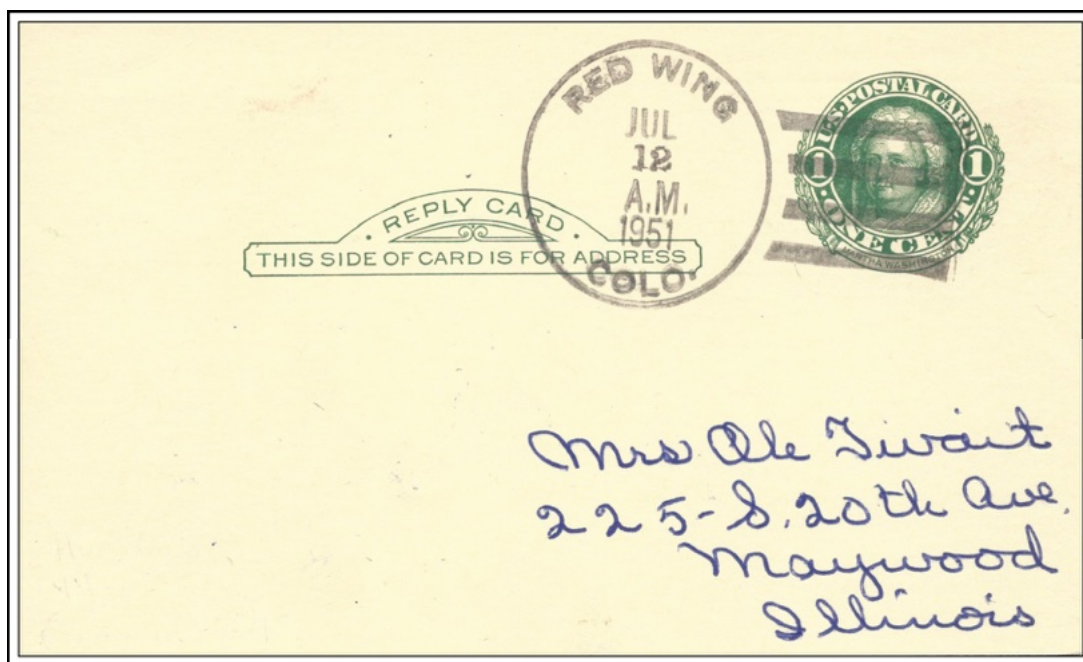 RED WING
JUL
12
A.M.
1951
COLO.
U.S. POSTAL CARD
1 1
ONE CENT
MARTHA WASHINGTON
REPLY CARD
THIS SIDE OF CARD IS FOR ADDRESS
Mrs Ole Twait
225-S. 20th Ave.
Maywood
Illinois